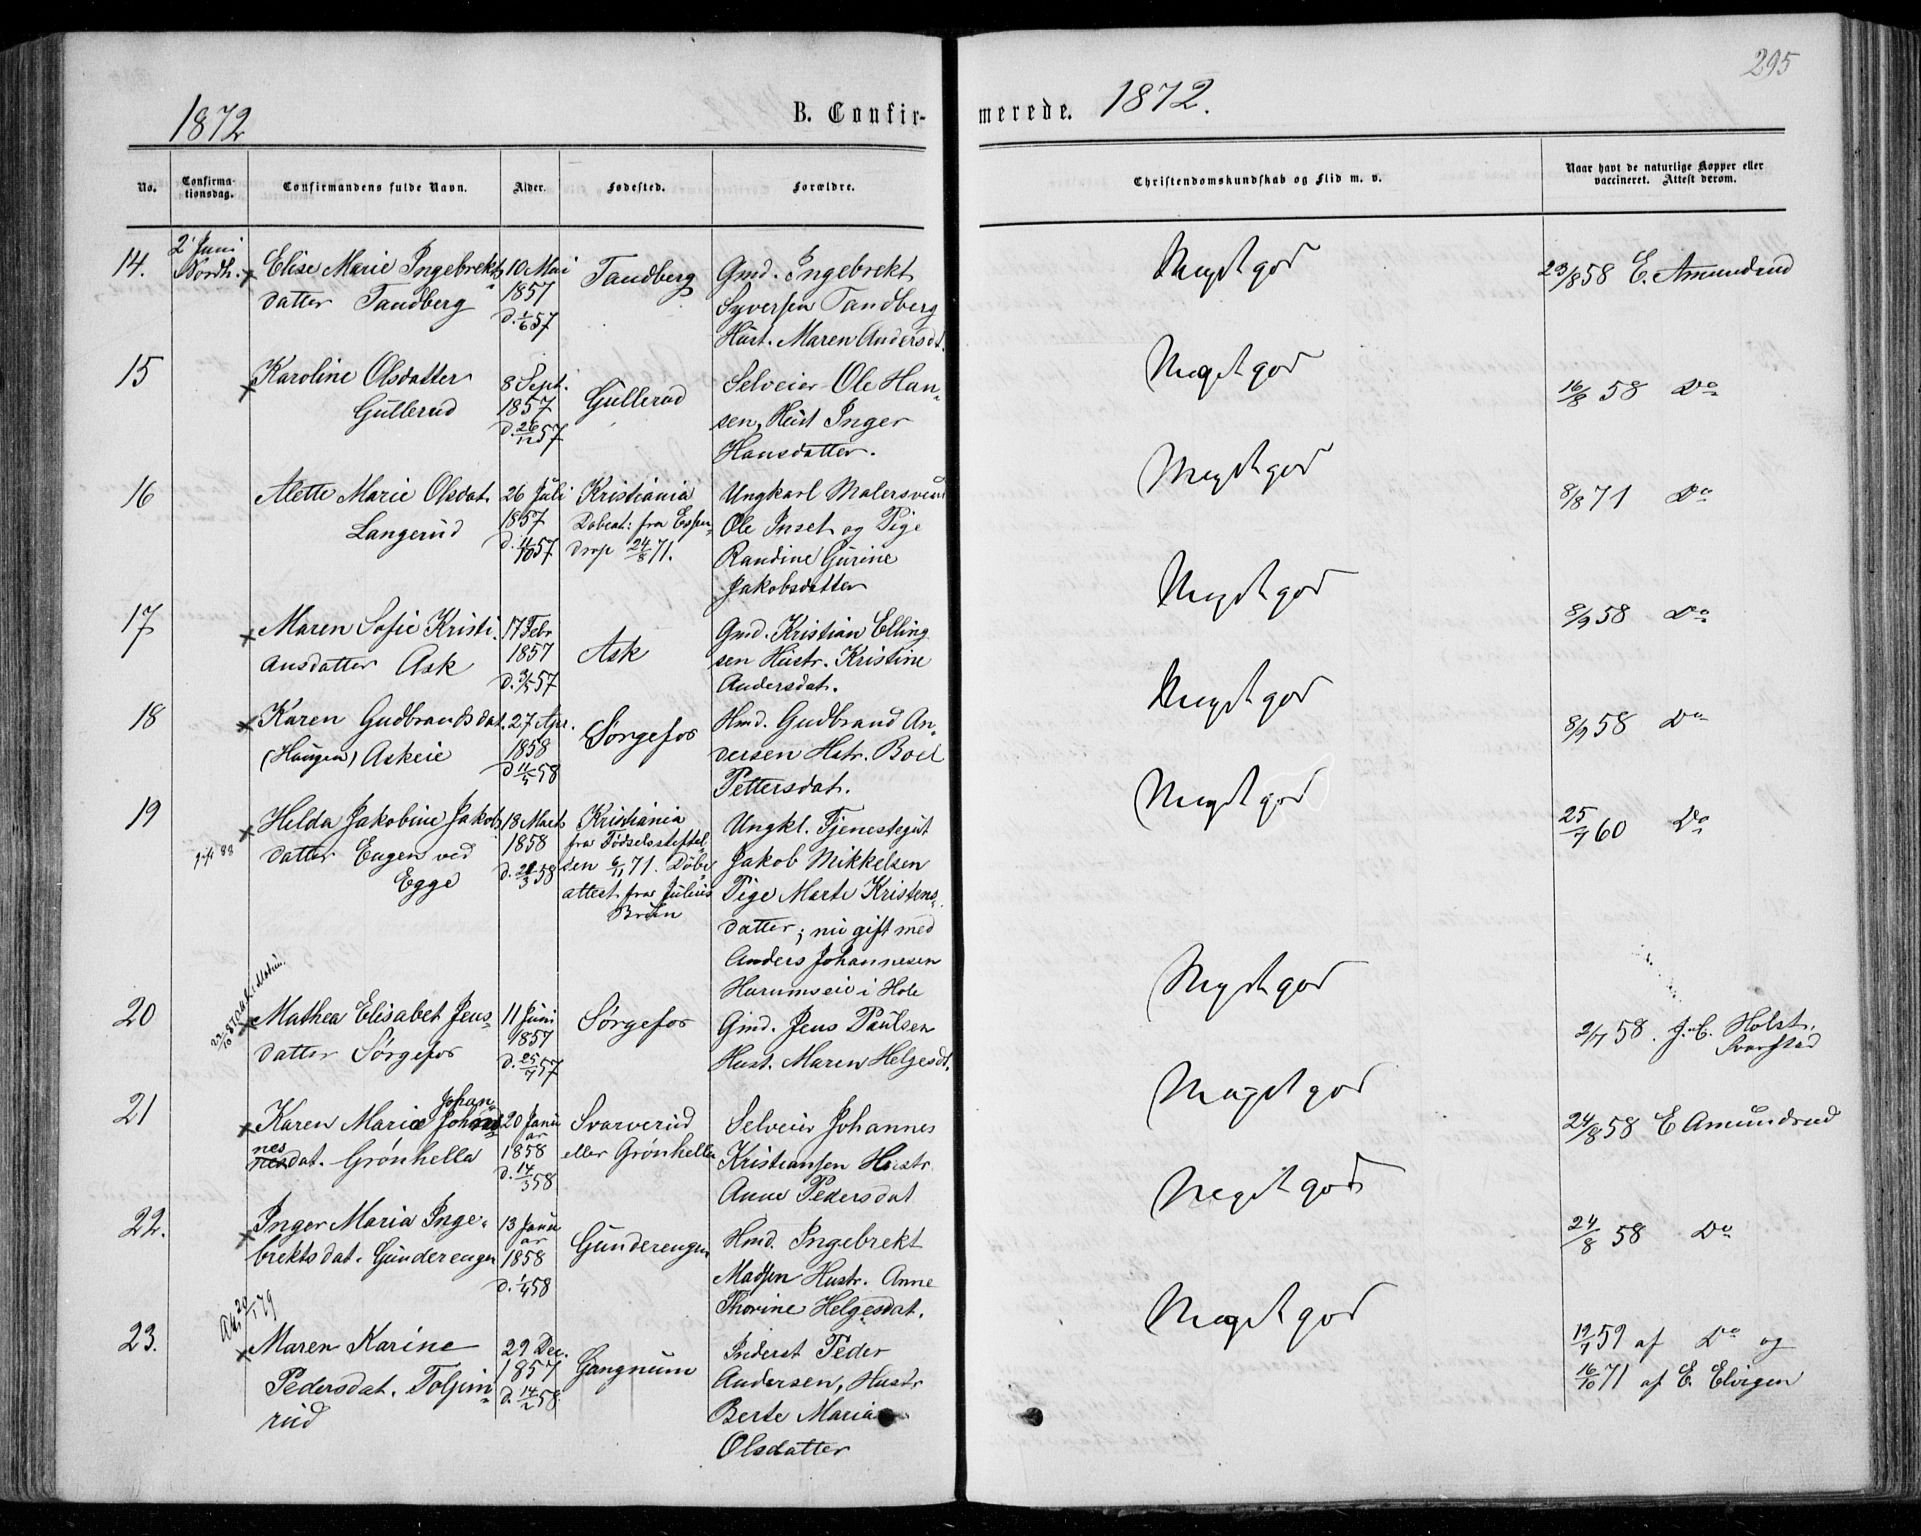 295
1872
B. Confir-
merede. 1872.
No.
Confirma-
tionsdag.
Confirmandens fulde Navn.
Alder.
Fødested.
Forældre.
Christendomskundskab og Flid m. v.
Naar havt de naturlige Kopper eller
vaccineret. Attest derom.
14.
2 Juni
Nordh.
Elise Marie Ingebrekts
datter Tandberg
10 Mai
1857
d. 1/6 57
Tandberg
Gmd. Ingebrekt
Syversen Tandberg
Hust. Maren Andersdt.
Meget god
23/8 58 E. Amundrud
15
Karoline Olsdatter
Gullerud
8 Sept.
1857
d. 26/12 57
Gullerud
Selveier Ole Han-
sen, Hust Inger
Hansdatter.
Meget god
16/8 58 Do
16
Alette Marie Olsdat.
Langerud
26 Juli
1857
d. 11/10 57
Kristiania
Døbeat: fra
drop 24/8 71.
Ungkarl Malersvend
Ole Inset og Pige
Randine Gurine
Jakobsdatter
Meget god
8/8 71 Do
17
Maren Sofie Kristi-
ansdatter Ask
17 Febr
1857
d. 3/5 57
Ask
Gmd. Kristian Elling
sen Hustr. Kristine
Andersdat.
Meget god
8/9 58 Do
18
Karen Gudbrandsdat.
(Haugen) Askeie
27 Apr.
1858
d 11/5 58
Sørgefos
Hmd. Gudbrand An-
dersen Hstr. Boel
Pettersdat.
Meget god
8/9 58 Do
19
gift 88
Helda Jakobine Jakobs
datter Engen ved
Egge
18 Marts
1858
d. 21/3 58
Kristiania
fra Fødselsstiftel-
den 6/11 71. Døbe
attest fra Julius
Bruun
Ungkl. Tjenestegut
Jakob Mikkelsen
Pige Marte Kristens-
datter; nu gift med
Anders Johannesen
Harumseie i Hole
Meget god
25/7 60 Do
20
Mathea Elisabet Jens-
datter Sørgefos
11 Juni
1857
d. 25/7 57
Sørgefos
Gmd. Jens Paulsen
Hust. Maren Helgesdt.
Meget god
2/7 58. J. C. Holst,
Svarstad
21
Johan-
Karen Marie
nes
dat. Grønhella
20 Janu
ar
1858
d. 14/3 58
Svarverud
eller Grønhella
Selveier Johannes
Kristiansen Hustr
Anne Pedersdat
Meget god
24/8 58 E Amundrud
22.
Inger Maria Inge-
brektsdat. Gunderengen
13 Janu
ar
1858
d. 1/4 58
Gunderengen
Hmd. Ingebrekt
Madsen Hustr. Anne
Thorine Helgesdat.
Meget god
24/8 58 Do
23.
Maren Karine
Pedersdat. Toljim-
rud
29 Dec.
1857
d. 14/2 58
Gangnum
Inderst Peder
Andersen, Hustr
Berte Maria
Olsdatter
Meget god
19/1 59 af Do og
16/10 71 af E. Elvigen